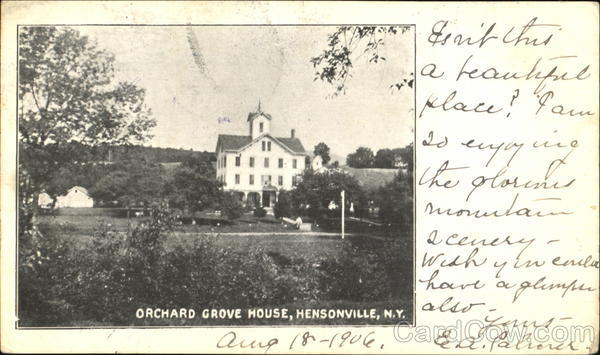 Isn't this
a beautiful
place? I am
so enjoying
the glorious
mountain
scenery-
Wish you could
have a glimpse
also.
Yours-
Ed. Palmer.
ORCHARD GROVE HOUSE, HENSONVILLE, N.Y.
Aug 18-1906.
CardCow.com